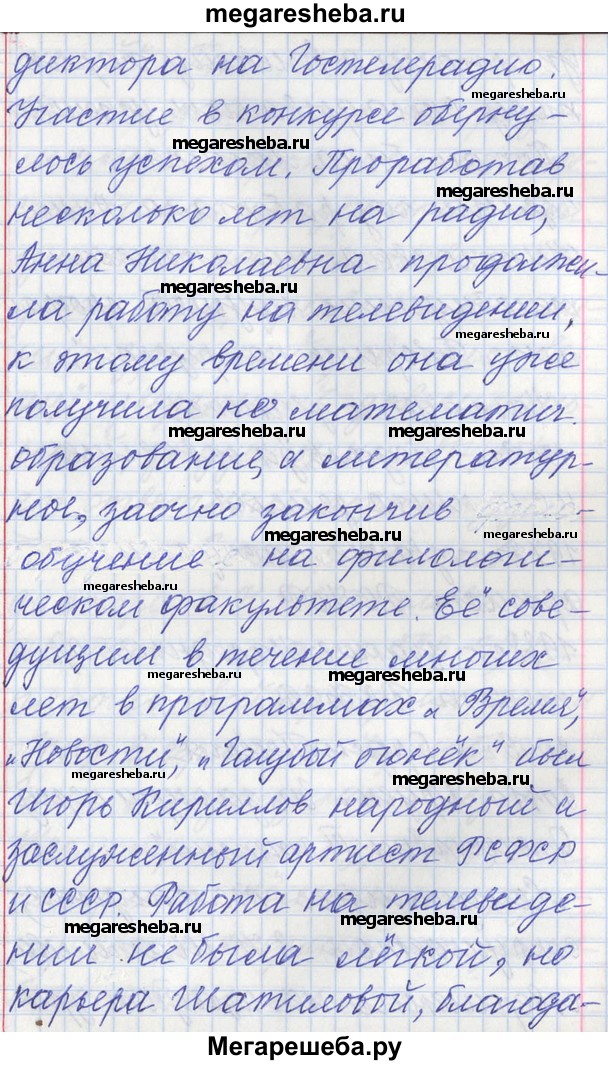 megaresheba.ru
диктора на Гостелерадио.
Участие в конкурсе оберну-
megaresheba.ru
лось успехом. Проработав
megaresheba.ru
несколько лет на радио,
Анна Николаевна продолжи-
megaresheba.ru
ла работу на телевидении,
megaresheba.ru
к этому времени она уже
megaresheba.ru
получила не математич.
megaresheba.ru megaresheba.ru
образование, а литератур-
ное, заочно закончив
megaresheba.ru
обучение на филологи-
megaresheba.ru
ческом факультете. Её сове-
дущим в течение многих
megaresheba.ru megaresheba.ru
лет в программах „Время",
„Новости", „Голубой огонёк" был
megaresheba.ru megaresheba.ru
Игорь Кириллов народный и
megaresheba.ru
заслуженный артист РСФСР
и СССР. Работа на телевиде-
megaresheba.ru megaresheba.ru
нии не была лёгкой, но
карьера Шатиловой, благода-
Мегарешеба.ру